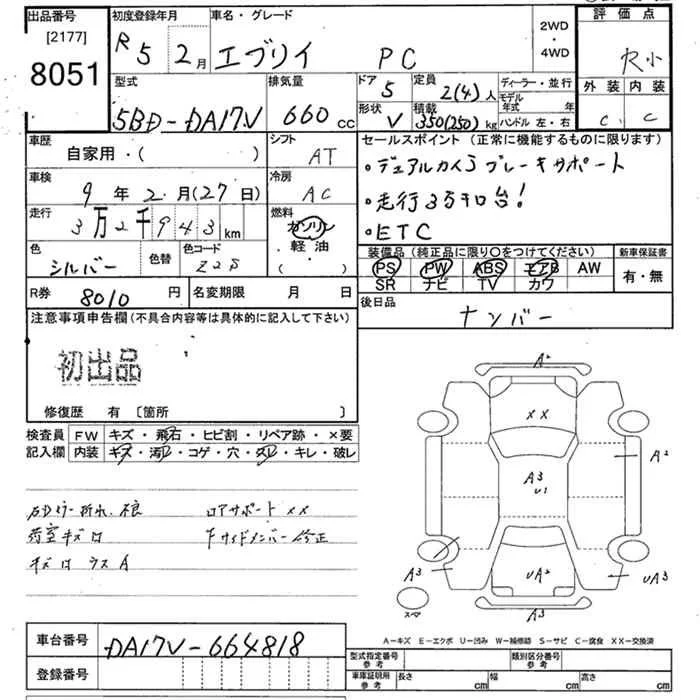 出品番号
[2177]
8051
初度登録年月
R 5 2月
車名・グレード
エブリイ PC
2WD
・
4WD
評価点
R小
外装 内装
C C
型式
5BD-DA17V
排気量
660 cc
ドア 5
形状 V
定員 2(4) 人
積載 350(250) kg
ディーラー・並行
モデル年式 年
ハンドル 左・右
車歴
自家用・( )
シフト
AT
車検
9 年 2 月(27日)
冷房
AC
走行
3万2千943km
燃料
ガソリン
軽油・
( )
色
シルバー
色替
色コード
Z2S
セールスポイント (正常に機能するものに限ります)
・デュアルカメラブレーキサポート
・走行3万キロ台!
・ETC
装備品(純正品に限り〇をつけてください)
PS PW ABS エアB AW
SR ナビ TV カワ
新車保証書
有・無
R券 8010 円
名変期限 月 日
後日品
ナンバー
注意事項申告欄(不具合内容等は具体的に記入して下さい)
初出品
修復歴 有 〔箇所 〕
検査員記入欄
FW キズ・飛石・ヒビ割・リペア跡・×要
内装 キズ・汚レ・コゲ・穴・スレ・キレ・破レ
右Dミラー折れ不良
ロアサポート XX
荷室キズ ロ
FサイドメンバーO修正
キズ ロ ウス A
A2
XX
A3
U1
A2
A3
UA2
UA3
A3
スペア
A-キズ E-エクボ U-凹み W-補修跡 S-サビ C-腐食 XX-交換済
車台番号
DA17V-664818
登録番号
型式指定番号
参考
類別区分番号
参考
車庫証明用
参考
長さ cm
幅 cm
高さ cm